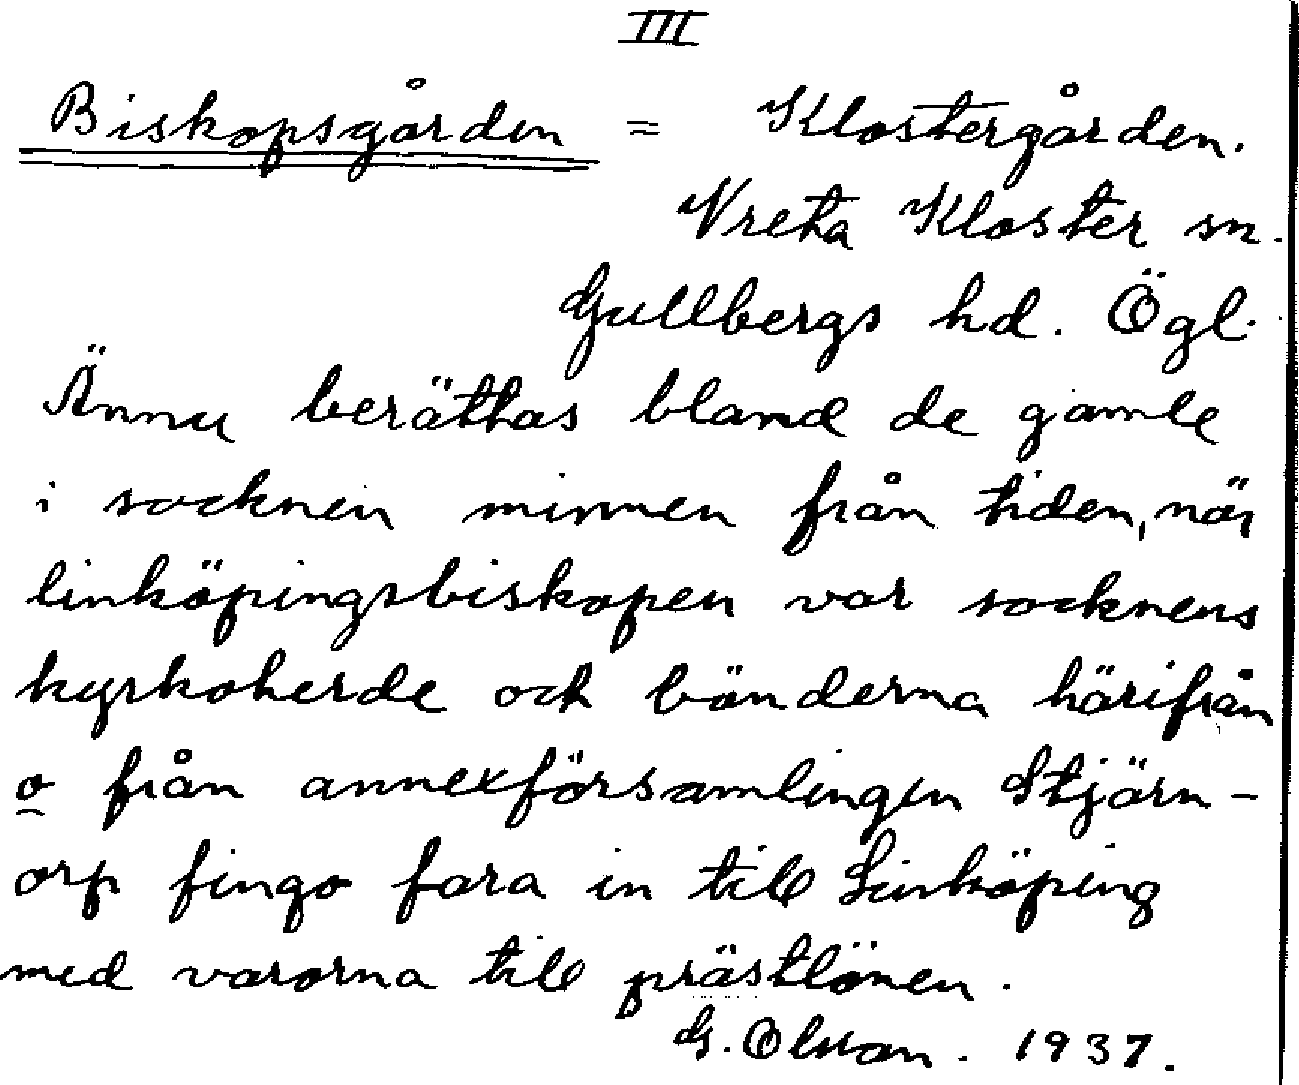 III
Biskopsgården = Klostergården.
Vreta Kloster sn.
Gullbergs hd. Ögl.
Ännu berättas bland de gamle
i socknen minnen från tiden, när
linköpingsbiskopen var socknens
kyrkoherde och bönderna härifrån
o från annexförsamlingen Stjärn-
orp fingo fara in till Linköping
med varorna till prästlönen.
G. Olsson. 1937.